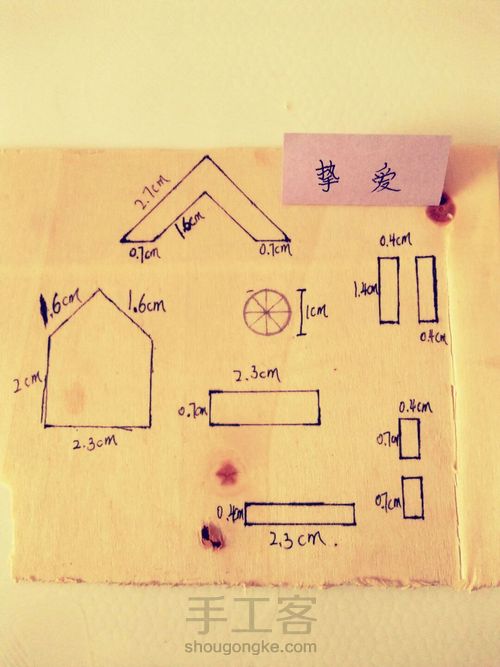 挚 爱
2.7cm
1.6cm
0.7cm
0.7cm
0.4cm
1.4cm
0.4cm
1.6cm
1.6cm
1cm
2cm
2.3cm
2.3cm
0.7cm
0.4cm
0.7cm
0.7cm
0.4cm
2.3cm.
手工客
shougongke.com